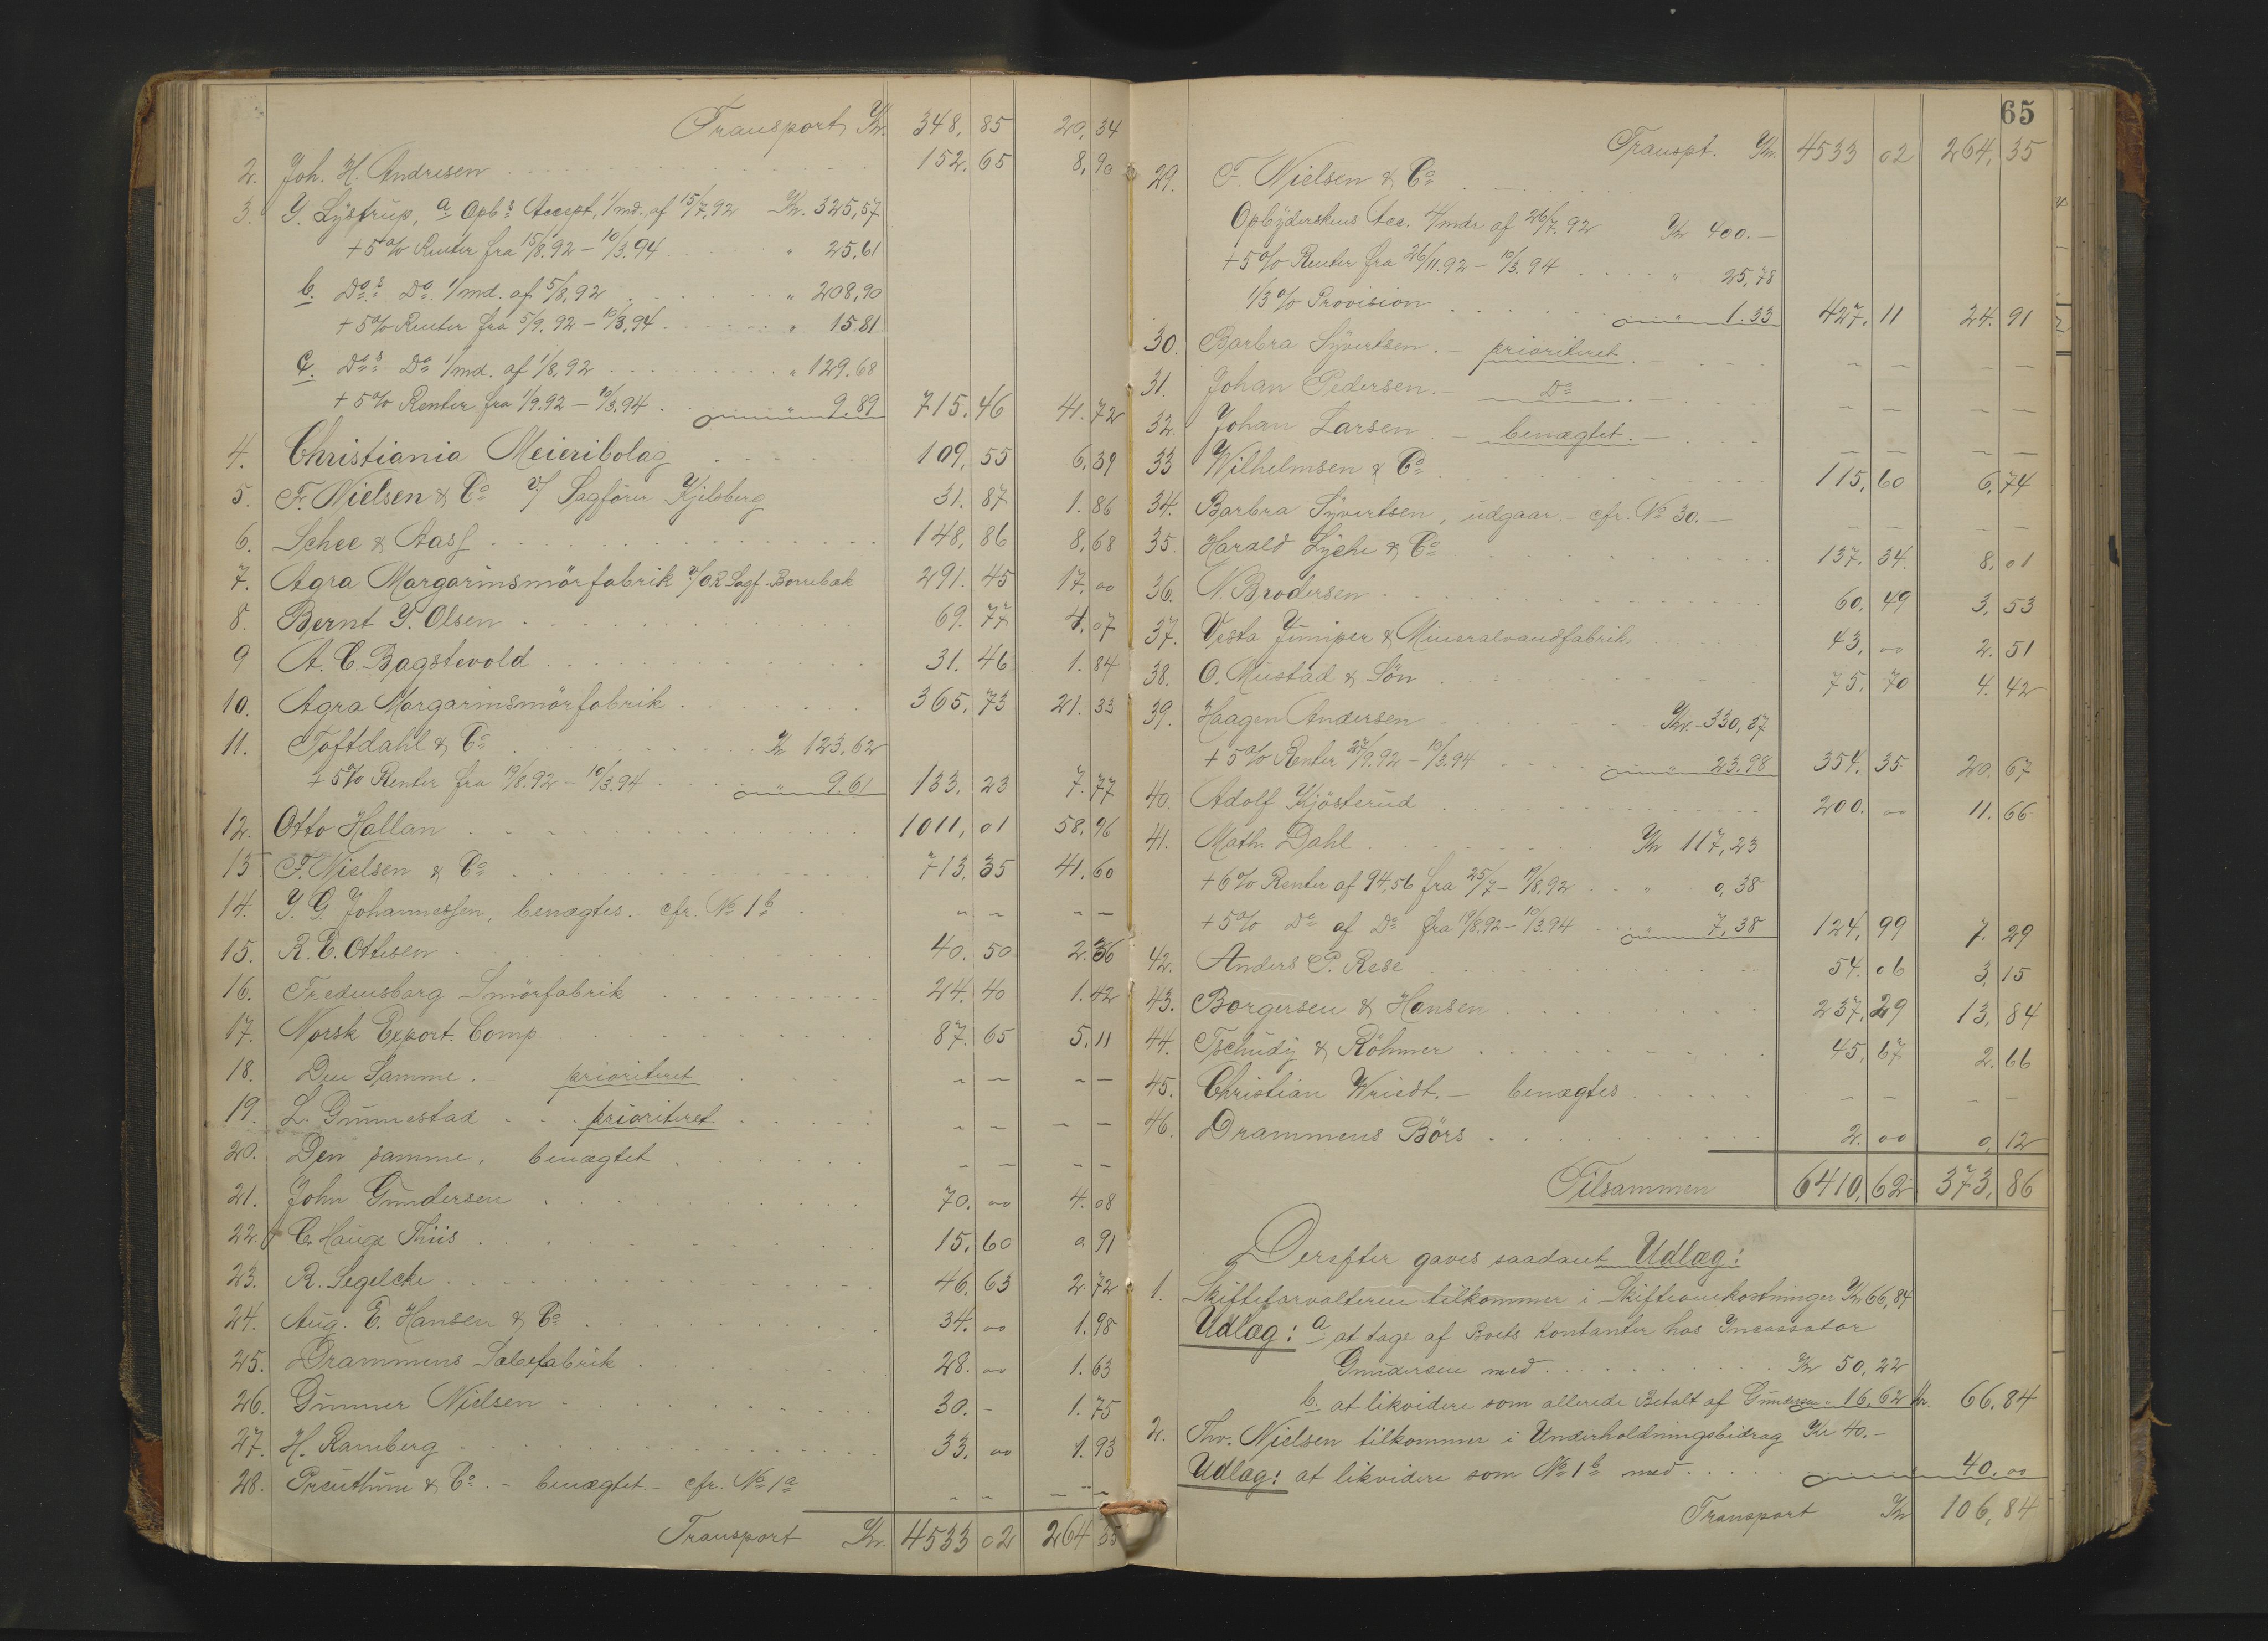 Transport Kr. 348,85 20,34
2. Joh. H. Andresen 152.65 8,90
3. J. Lÿstrup, a Opb.s Accept, 1/md. af 15/7.92 Kr. 325,57
+ 5% Renter fra 15/8.92 – 10/3.94 " 25,61
b. Do.s Do. 1/md. af 5/8,92 " 208,90
+ 5% Renter fra 5/9.92 – 10/3.94 " 15.81
c. Do.s Do 1/md. af 1/8,92 " 129.68
+ 5% Renter fra 1/9.92 – 10/3.94 " 9.89 715.46 41.72
4. Christiania Meieribolag 109,55 6,39
5. Fr. Nielsen & Co v/ Sagförer Kjelsberg 31.87 1.86
6. Schee & Aass 148,86 8,68
7. Agra Margarinsmörfabrik v/ O.R. Sagf. Borrebæk 291.45 17,00
8. Bernt J. Olsen 69.77 4,07
9 A. C. Bagstevold 31.46 1.84
10. Agra Margarinsmörfabrik 365.73 21.33
11. Toftdahl & Co Kr 123.62
+ 5% Renter fra 19/8.92 – 10/3.94 " 9.61 133.23 7.77
12. Otto Hallan 1011,01 58,96
13 F. Nielsen & Co 713,35 41,60
14. J. G. Johannessen, benægtes. cfr. No 1b – – – –
15. R. E. Ottesen 40.50 2.36
16. Fredensborg Smörfabrik 24.40 1.42
17. Norsk Export. Comp 87.65 5.11
18. Den Samme. – prioriteret – – – –
19. L. Gunnestad prioriteret – – – –
20. Den samme, benægtet – – – –
21. John Gundersen 70.00 4.08
22. C. Hauge Thiis 15.60 0.91
23. R. Segelcke 46,63 2.72
24. Aug. E. Hansen & Co 34.00 1.98
25. Drammens Sæbefabrik 28.00 1.63
26. Gunner Nielsen 30.– 1.75
27. H. Ramberg 33.00 1.93
28. Preuthun & Co. – benægtet – cfr. No 1a – – – –
Transport Kr. 4533 02 264 35
65
Transpt. Kr. 4533 02 264,35
29. F. Nielsen & Co
Opbÿderskens Acc. 4/mdr af 26/7.92 Kr 400.–
+ 5% Renter fra 26/11.92 – 10/3.94 " 25,78
1/3% Provision " 1.33 427.11 24.91
30. Barbra Sÿvertsen. – prioriteret. – – – – –
31. Johan Pedersen. – Do – – – –
32. Johan Larsen – benægtet. – – – – –
33 Wilhelmsen & Co 115,60 6,74
34. Barbra Sÿvertsen, udgaar. – cfr. No 30. – – – – –
35. Harald Lÿche & Co 137.34 8,01
36. N. Brodersen 60,49 3,53
37. Vesta Juniper & Mineralvandfabrik 43,00 2.51
38. O. Mustad & Sön 75.70 4.42
39. Haagen Andersen Kr. 330,37
+ 5% Renter 27/9.92 – 10/3.94 " 23.98 354.35 20.67
40. Adolf Kjösterud 200.00 11.66
41. Math. Dahl Kr 117,23
+ 6% Renter af 94,56 fra 25/7 – 19/8,92 " 0,38
+ 5% Do af Do fra 19/8.92 – 10/3.94 " 7,38 124,99 7.29
42. Anders P. Rese 54.06 3,15
43. Borgersen & Hansen 237,29 13,84
44. Tschudÿ & Röhmer 45,67 2.66
45. Christian Wriedt. – benægtes – – – –
46. Drammens Börs 2.00 0,12
Tilsammen 6410,62 373,86
Derefter gaves saadant Udlæg:
1. Skifteforvalteren tilkommer i Skifteomkostninger Kr 66,84
Udlæg: a at tage af Boets Kontanter hos Incassator
Gundersen med Kr 50,22
b. at likvidere som allerede Betalt af Gundersen " 16,62 Kr. 66.84
2. Thv. Nielsen tilkommer i Underholdningsbidrag Kr 40.–
Udlæg: at likvidere som No 1b med 40.00
Transport Kr 106,84